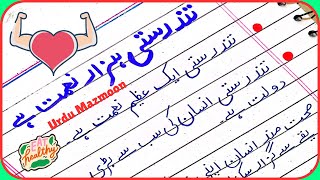 تندرستی ہزار نعمت ہے
Urdu Mazmoon
تندرستی ایک عظیم نعمت ہے
تندرستی انسان کی سب سے بڑی
دولت ہے
صحت مند انسان اپنی
EAT
healthy